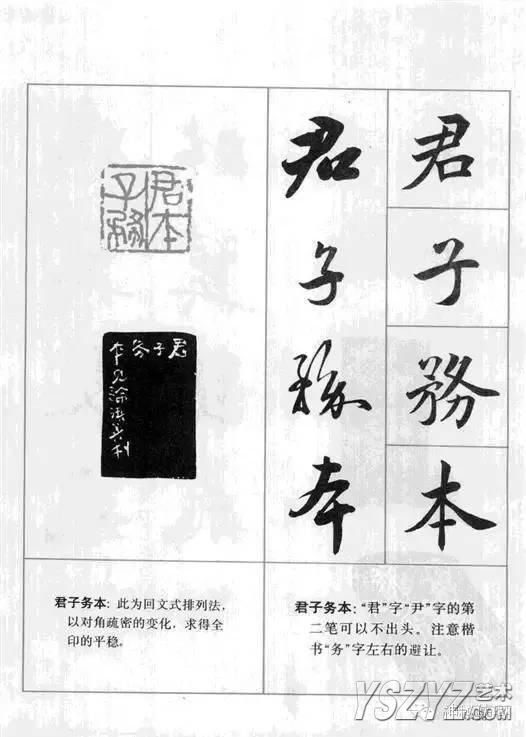 君子務本
君子務本
君本
子務
君子务本：此为回文式排列法，
以对角疏密的变化，求得全
印的平稳。
君子务本：“君”字“尹”字的第
二笔可以不出头。注意楷
书“务”字左右的避让。
YSZYZ艺术
.COM